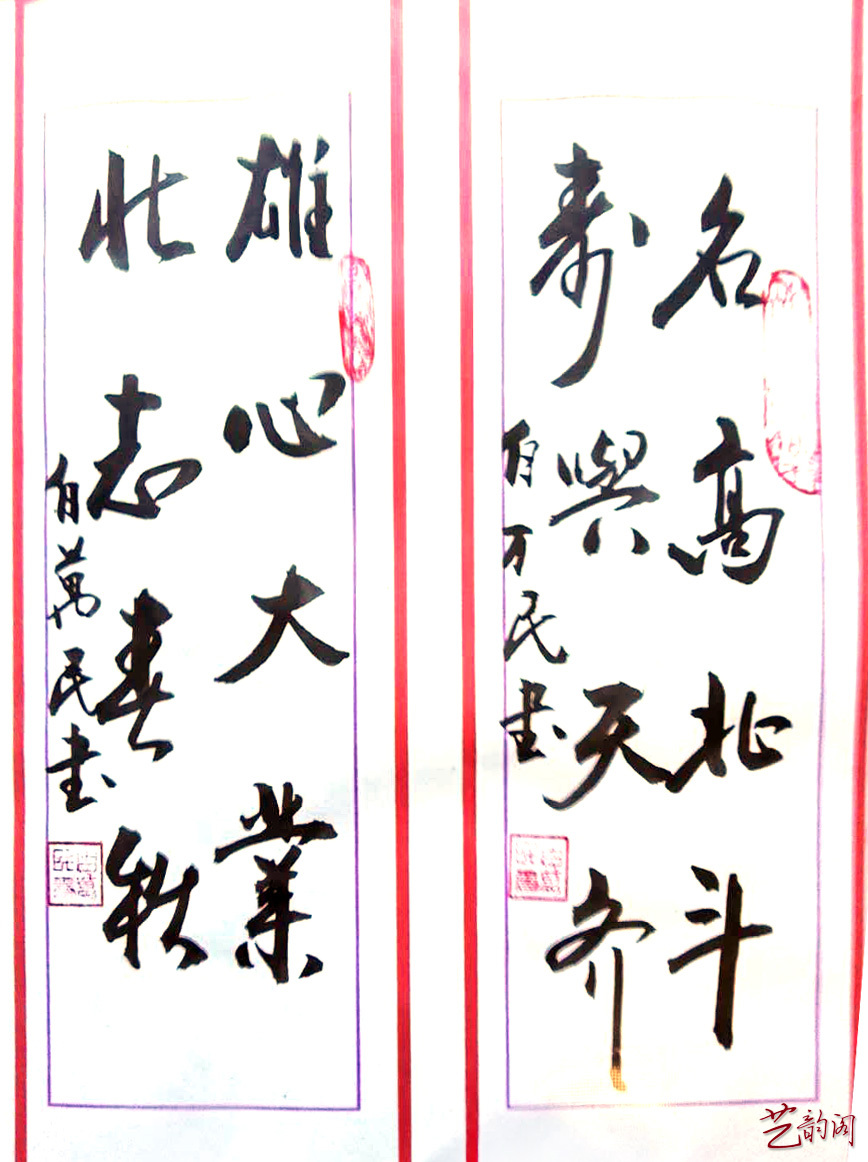 名高北斗
寿與天齐
白万民書
雄心大業
壮志春秋
白萬民書
艺韵阁